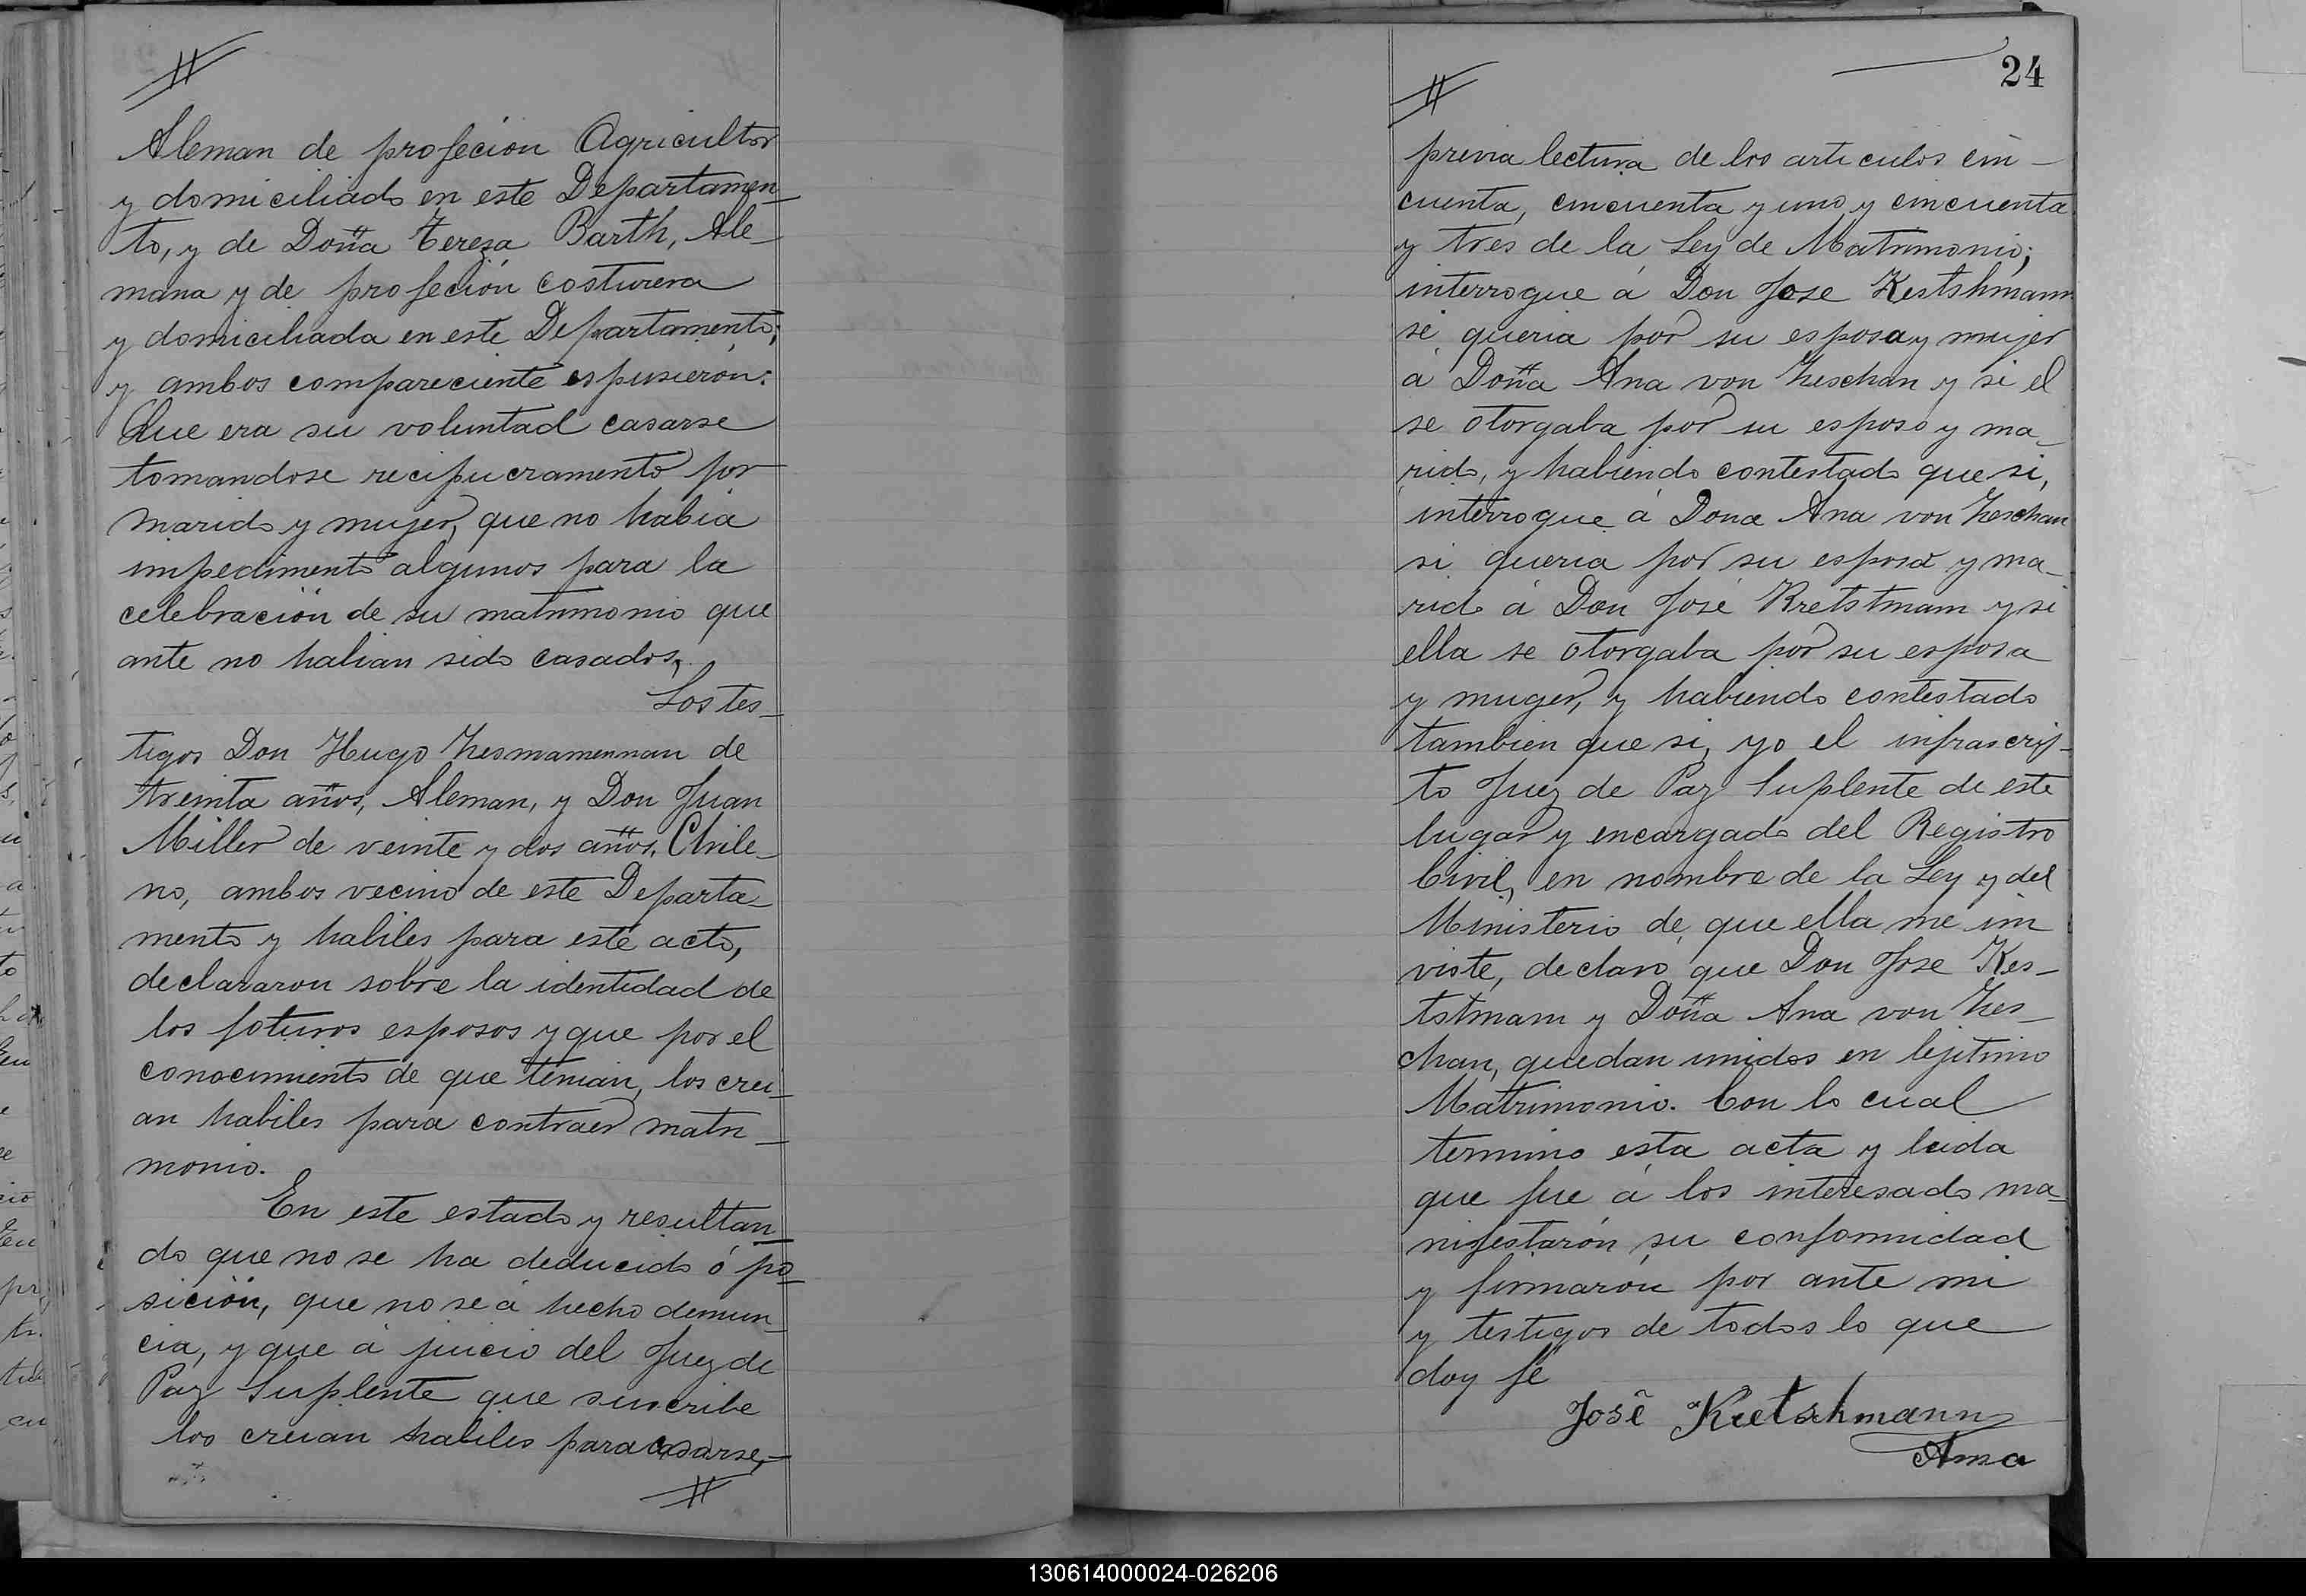 Aleman de profeción Agricultor
y domiciliado en este Departamen_
to, y de Doña Tereza Barth, Ale_
mana y de profeción costurera
y domiciliada en este Departamento;
y ambos compareciente espusierón:
Que era su voluntad casarse
tomandose recipucramento por
marido y mujer, que no habia
impedimento algunos para la
celebración de su matrimonio que
ante no habian sido casados,
Los tes_
tigos Don Hugo de
treinta años, Aleman, y Don Juan
Miller de veinte y dos años, Chile_
no, ambos vecino de este Departa_
mento y habiles para este acto,
declararon sobre la identidad de
los foturos esposos y que por el
conocimiento de que tenian, los crei_
an habiles para contraer matri_
monio.
En este estado y resultan_
do que no se ha deducido ó po_
sición, que no se á hecho denun_
cia, y que á juicio del Juez de
Paz Suplente que suscribe
los creian habiles para casarse,
24
previa lectura de los articulos cin_
cuenta, cincuenta y uno y cincuenta
y tres de la Ley de Matrimonio;
interrogue á Don Jose Kestshmann
si queria por su esposa y mujer
á Doña Ana von Zeschan y si el
se otorgaba por su esposo y ma_
rido, y habiendo contestado que si,
interrogue á Dona Ana von Zeschan
si queria por su esposo y ma_
rido á Don José Kretstmam y si
ella se otorgaba por su esposa
y muger, y habiendo contestado
tambien que si, yo el infrascrip_
to Juez de Paz Suplente de este
lugar y encargado del Registro
Civil, en nombre de la Ley y del
Ministerio de que ella me in
viste, declaro que Don Jose Kes_
tstmam y Doña Ana von Zes_
chan, quedan unidos en lejitimo
Matrimonio. Con lo cual
termino esta acta y leida
que fue á los interesado ma_
nifestarón su conformidad
y firmarón por ante mi
y testigos de todos lo que
doy fé
José Kretshmann
Ana
130614000024-026206